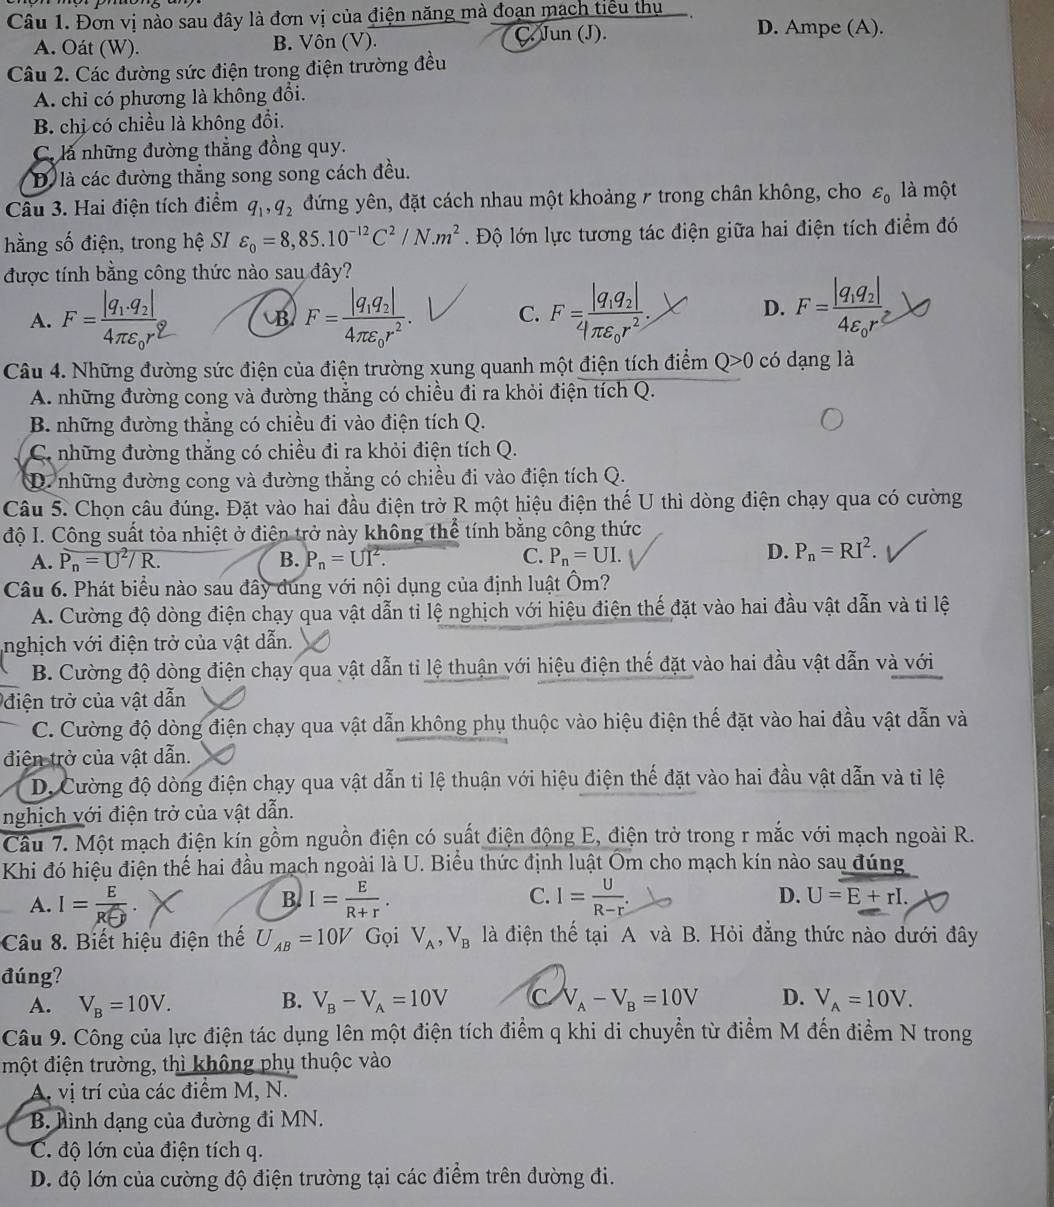 Câu 1. Đơn vị nào sau đây là đơn vị của điện năng mà đoạn mạch tiêu thụ
A. Oát (W). B. Vôn (V). C. Jun (J). D. Ampe (A).
Câu 2. Các đường sức điện trong điện trường đều
A. chỉ có phương là không đổi.
B. chỉ có chiều là không đổi.
C. là những đường thẳng đồng quy.
D. là các đường thẳng song song cách đều.
Câu 3. Hai điện tích điểm q₁,q₂ đứng yên, đặt cách nhau một khoảng r trong chân không, cho ε₀ là một
hằng số điện, trong hệ SI ε₀ = 8,85.10⁻¹²C² / N.m². Độ lớn lực tương tác điện giữa hai điện tích điểm đó
được tính bằng công thức nào sau đây?
A. F = |q₁.q₂| / 4πε₀r² B. F = |q₁q₂| / 4πε₀r². C. F = |q₁q₂| / 4πε₀r². D. F = |q₁q₂| / 4ε₀r²
Câu 4. Những đường sức điện của điện trường xung quanh một điện tích điểm Q>0 có dạng là
A. những đường cong và đường thẳng có chiều đi ra khỏi điện tích Q.
B. những đường thẳng có chiều đi vào điện tích Q.
C. những đường thẳng có chiều đi ra khỏi điện tích Q.
D. những đường cong và đường thẳng có chiều đi vào điện tích Q.
Câu 5. Chọn câu đúng. Đặt vào hai đầu điện trở R một hiệu điện thế U thì dòng điện chạy qua có cường
độ I. Công suất tỏa nhiệt ở điện trở này không thể tính bằng công thức
A. Pₙ = U²/ R. B. Pₙ = UI². C. Pₙ = UI. D. Pₙ = RI².
Câu 6. Phát biểu nào sau đây đúng với nội dụng của định luật Ôm?
A. Cường độ dòng điện chạy qua vật dẫn tỉ lệ nghịch với hiệu điện thế đặt vào hai đầu vật dẫn và tỉ lệ
nghịch với điện trở của vật dẫn.
B. Cường độ dòng điện chạy qua vật dẫn tỉ lệ thuận với hiệu điện thế đặt vào hai đầu vật dẫn và với
điện trở của vật dẫn
C. Cường độ dòng điện chạy qua vật dẫn không phụ thuộc vào hiệu điện thế đặt vào hai đầu vật dẫn và
điện trở của vật dẫn.
D. Cường độ dòng điện chạy qua vật dẫn tỉ lệ thuận với hiệu điện thế đặt vào hai đầu vật dẫn và tỉ lệ
nghịch với điện trở của vật dẫn.
Câu 7. Một mạch điện kín gồm nguồn điện có suất điện động E, điện trở trong r mắc với mạch ngoài R.
Khi đó hiệu điện thế hai đầu mạch ngoài là U. Biểu thức định luật Ôm cho mạch kín nào sau đúng
A. I = E / R−r. B. I = E / R+r. C. I = U / R−r. D. U = E + rI.
Câu 8. Biết hiệu điện thế U_AB = 10V Gọi V_A, V_B là điện thế tại A và B. Hỏi đẳng thức nào dưới đây
đúng?
A. V_B = 10V. B. V_B − V_A = 10V C. V_A − V_B = 10V D. V_A = 10V.
Câu 9. Công của lực điện tác dụng lên một điện tích điểm q khi di chuyển từ điểm M đến điểm N trong
một điện trường, thì không phụ thuộc vào
A. vị trí của các điểm M, N.
B. hình dạng của đường đi MN.
C. độ lớn của điện tích q.
D. độ lớn của cường độ điện trường tại các điểm trên đường đi.